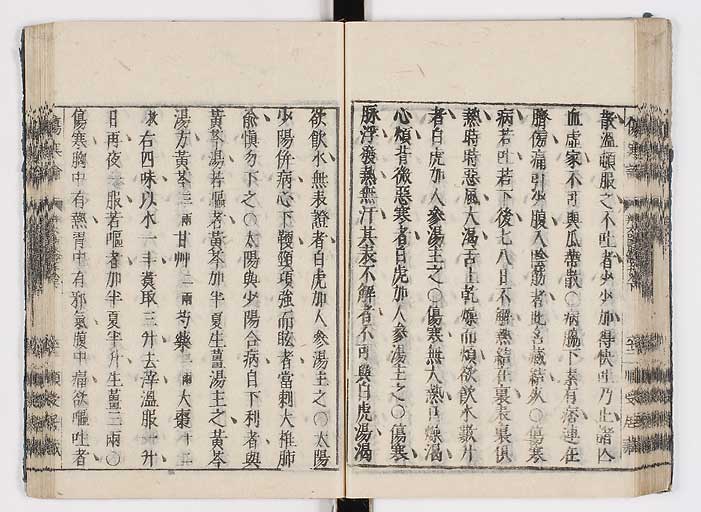 散溫頓服之不吐者少少加得快吐乃止諸亡
血虛家不可與瓜蒂散○病脇下素有痞連在
臍傍痛引少腹入陰筋者此名藏結死○傷寒
病若吐若下後七八日不解熱結在裏表裏俱
熱時時惡風大渴舌上乾燥而煩欲飲水數升
者白虎加人參湯主之○傷寒無大熱口燥渴
心煩背微惡寒者白虎加人參湯主之○傷寒
脉浮發熱無汗其表不解者不可與白虎湯渴
欲飲水無表證者白虎加人參湯主之○太陽
少陽併病心下鞕頸項強而眩者當刺大椎肺
俞慎勿下之○太陽與少陽合病自下利者與
黃芩湯若嘔者黃芩加半夏生薑湯主之黃芩
湯方黃芩三兩甘艸二兩芍藥二兩大棗十二
右四味以水一斗煑取三升去滓溫服一升
日再夜一服若嘔者加半夏半升生薑三兩○
傷寒胸中有熱胃中有邪氣腹中痛欲嘔吐者
傷寒論